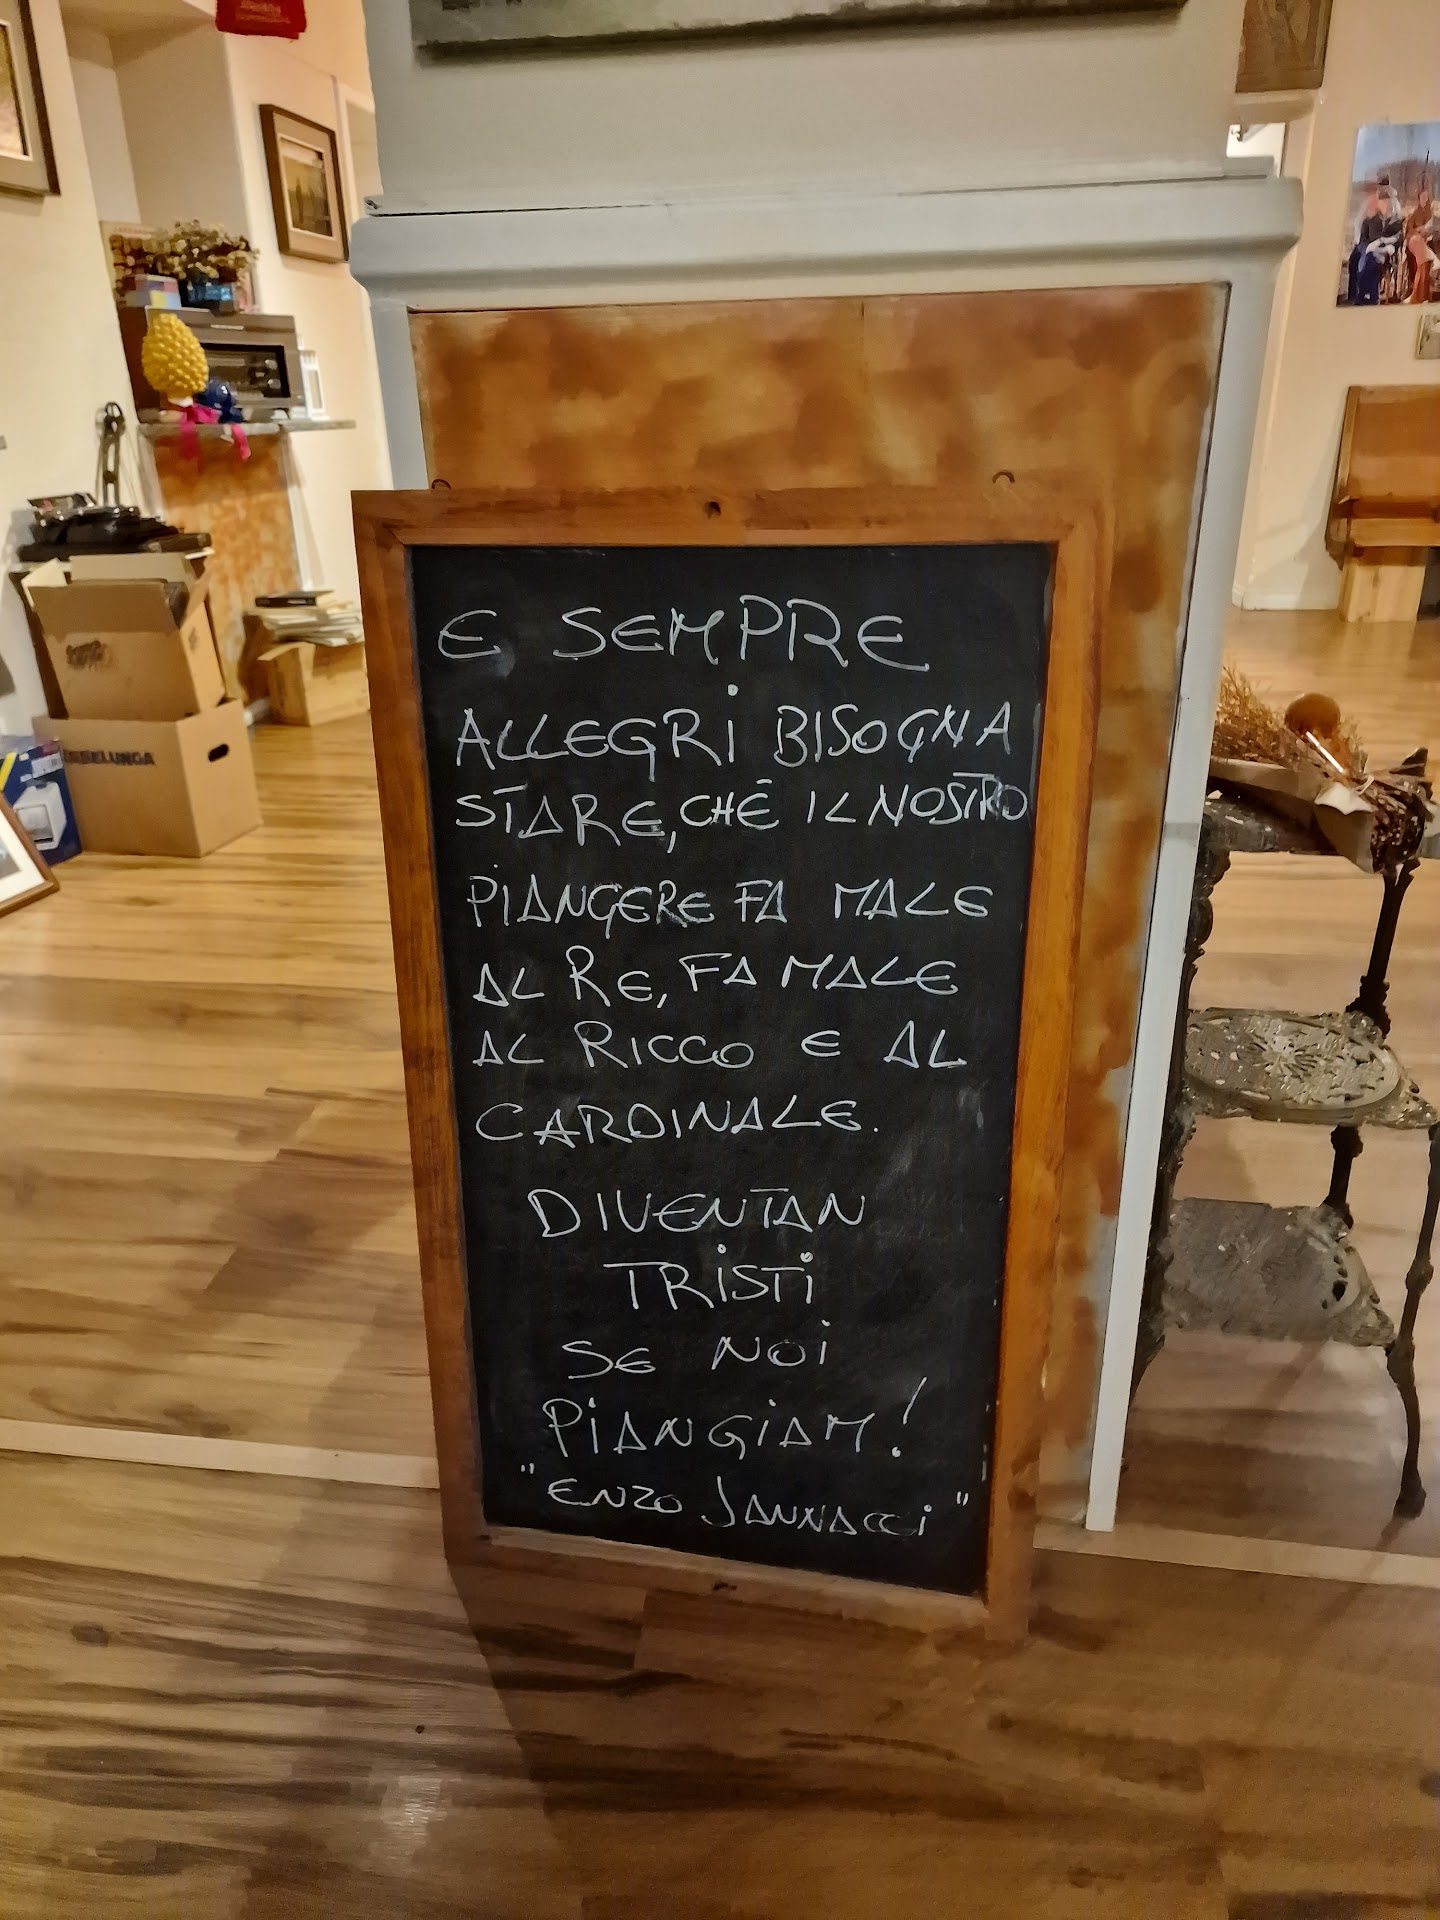 E SEMPRE
ALLEGRI BISOGNA
STARE, CHÉ IL NOSTRO
PIANGERE FA MALE
AL RE, FA MALE
AL RICCO E AL
CARDINALE.
DIVENTAN
TRISTI
SE NOI
PIANGIAM!
"ENZO JANNACCI"